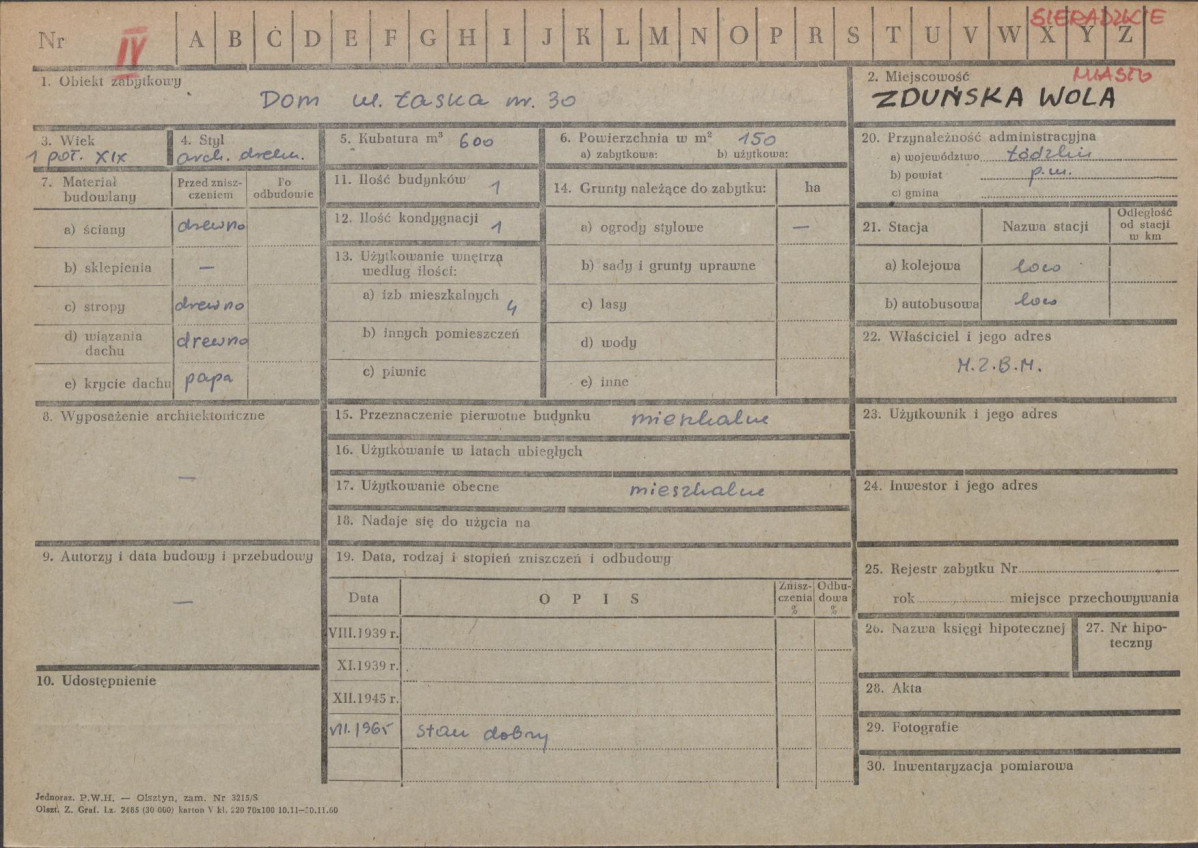 Nr IV A B C D E F G H I J K L M N O P R S T U V W X Y Z
SIERADZKIE
1. Obiekt zabytkowy
Dom ul. Łaska nr. 30
2. Miejscowość
MIASTO
ZDUŃSKA WOLA
3. Wiek
1 poł. XIX
4. Styl
arch. drewn.
5. Kubatura m³ 600
6. Powierzchnia w m² 150
a) zabytkowa: b) użytkowa:
7. Materiał budowlany
Przed znisz-czeniem
Po odbudowie
a) ściany drewno
b) sklepienia —
c) stropy drewno
d) wiązania dachu drewno
e) krycie dachu papa
8. Wyposażenie architektoniczne
—
9. Autorzy i data budowy i przebudowy
—
10. Udostępnienie
11. Ilość budynków 1
12. Ilość kondygnacji 1
13. Użytkowanie wnętrza według ilości:
a) izb mieszkalnych 4
b) innych pomieszczeń
c) piwnic
14. Grunty należące do zabytku: ha
a) ogrody stylowe —
b) sady i grunty uprawne
c) lasy
d) wody
e) inne
15. Przeznaczenie pierwotne budynku mieszkalne
16. Użytkowanie w latach ubiegłych
17. Użytkowanie obecne mieszkalne
18. Nadaje się do użycia na
19. Data, rodzaj i stopień zniszczeń i odbudowy
Data
O P I S
Znisz-czenia %
Odbu-dowa %
VIII.1939 r.
XI.1939 r.
XII.1945 r.
VII.1965 stan dobry
20. Przynależność administracyjna
a) województwo łódzkie
b) powiat p.m.
c) gmina
21. Stacja
Nazwa stacji
Odległość od stacji w km
a) kolejowa loco
b) autobusowa loco
22. Właściciel i jego adres
M.Z.B.M.
23. Użytkownik i jego adres
24. Inwestor i jego adres
25. Rejestr zabytku Nr
rok miejsce przechowywania
26. Nazwa księgi hipotecznej
27. Nr hipo-teczny
28. Akta
29. Fotografie
30. Inwentaryzacja pomiarowa
Jednoraz. P.W.H. — Olsztyn, zam. Nr 3215/S
Olszt. Z. Graf. Lz. 2485 (30 000) karton V kl. 220 70x100 10.11-30.11.60